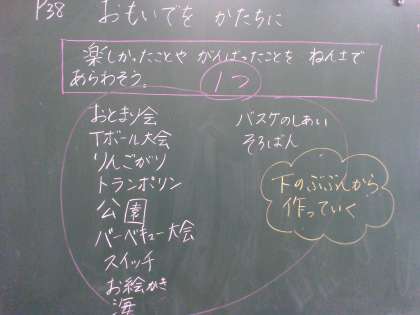 P38 おもいでを かたちに
楽しかったことや がんばったことを ねん土で
あらわそう。 1つ
おとまり会
Tボール大会
りんごがり
トランポリン
公園
バーベキュー大会
スイッチ
お絵かき
海
バスケのしあい
そろばん
下のぶぶんから
作っていく